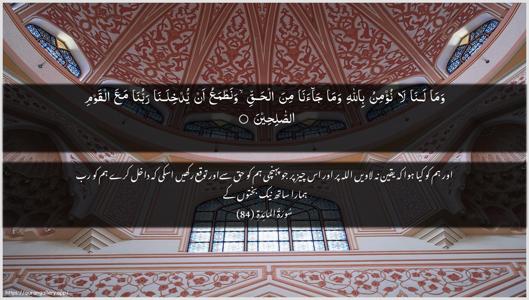 وَمَا لَـنَا لَا نُؤْمِنُ بِاللّٰهِ وَمَا جَآءَنَا مِنَ الْحَـقِّ ۙ وَنَطْمَعُ اَنْ يُّدْخِلَـنَا رَبُّنَا مَعَ الْقَوْمِ
الصّٰلِحِيْنَ ۝
اور ہم کو کیا ہوا کہ یقین نہ لاویں اللہ پر اور اس چیز پر جو پہنچی ہم کو حق سے اور توقع رکھیں اسکی کہ داخل کرے ہم کو رب
ہمارا ساتھ نیک بختوں کے
سُوْرَةُ الْمَائِدَة (84)
https://qurangallery.app/